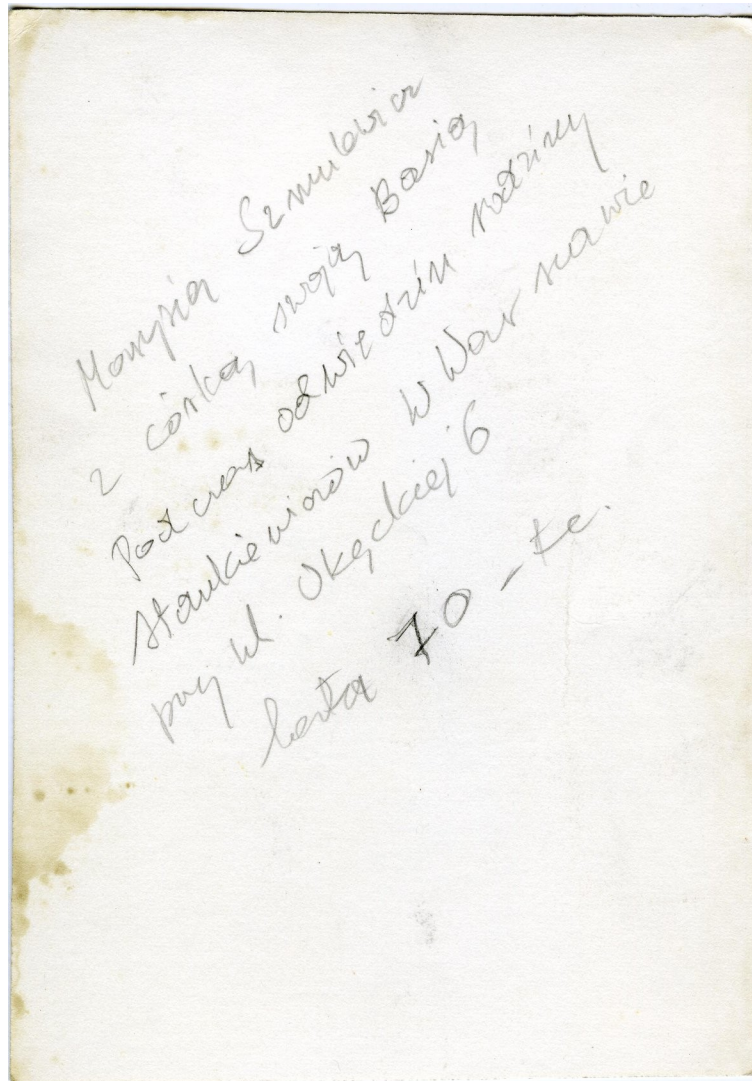 Marysia Szmulewicz
z córką swoją Basią
Podczas odwiedzin rodziny
Stankiewiczów w Warszawie
przy ul. Okęckiej 6
lata 70-te.